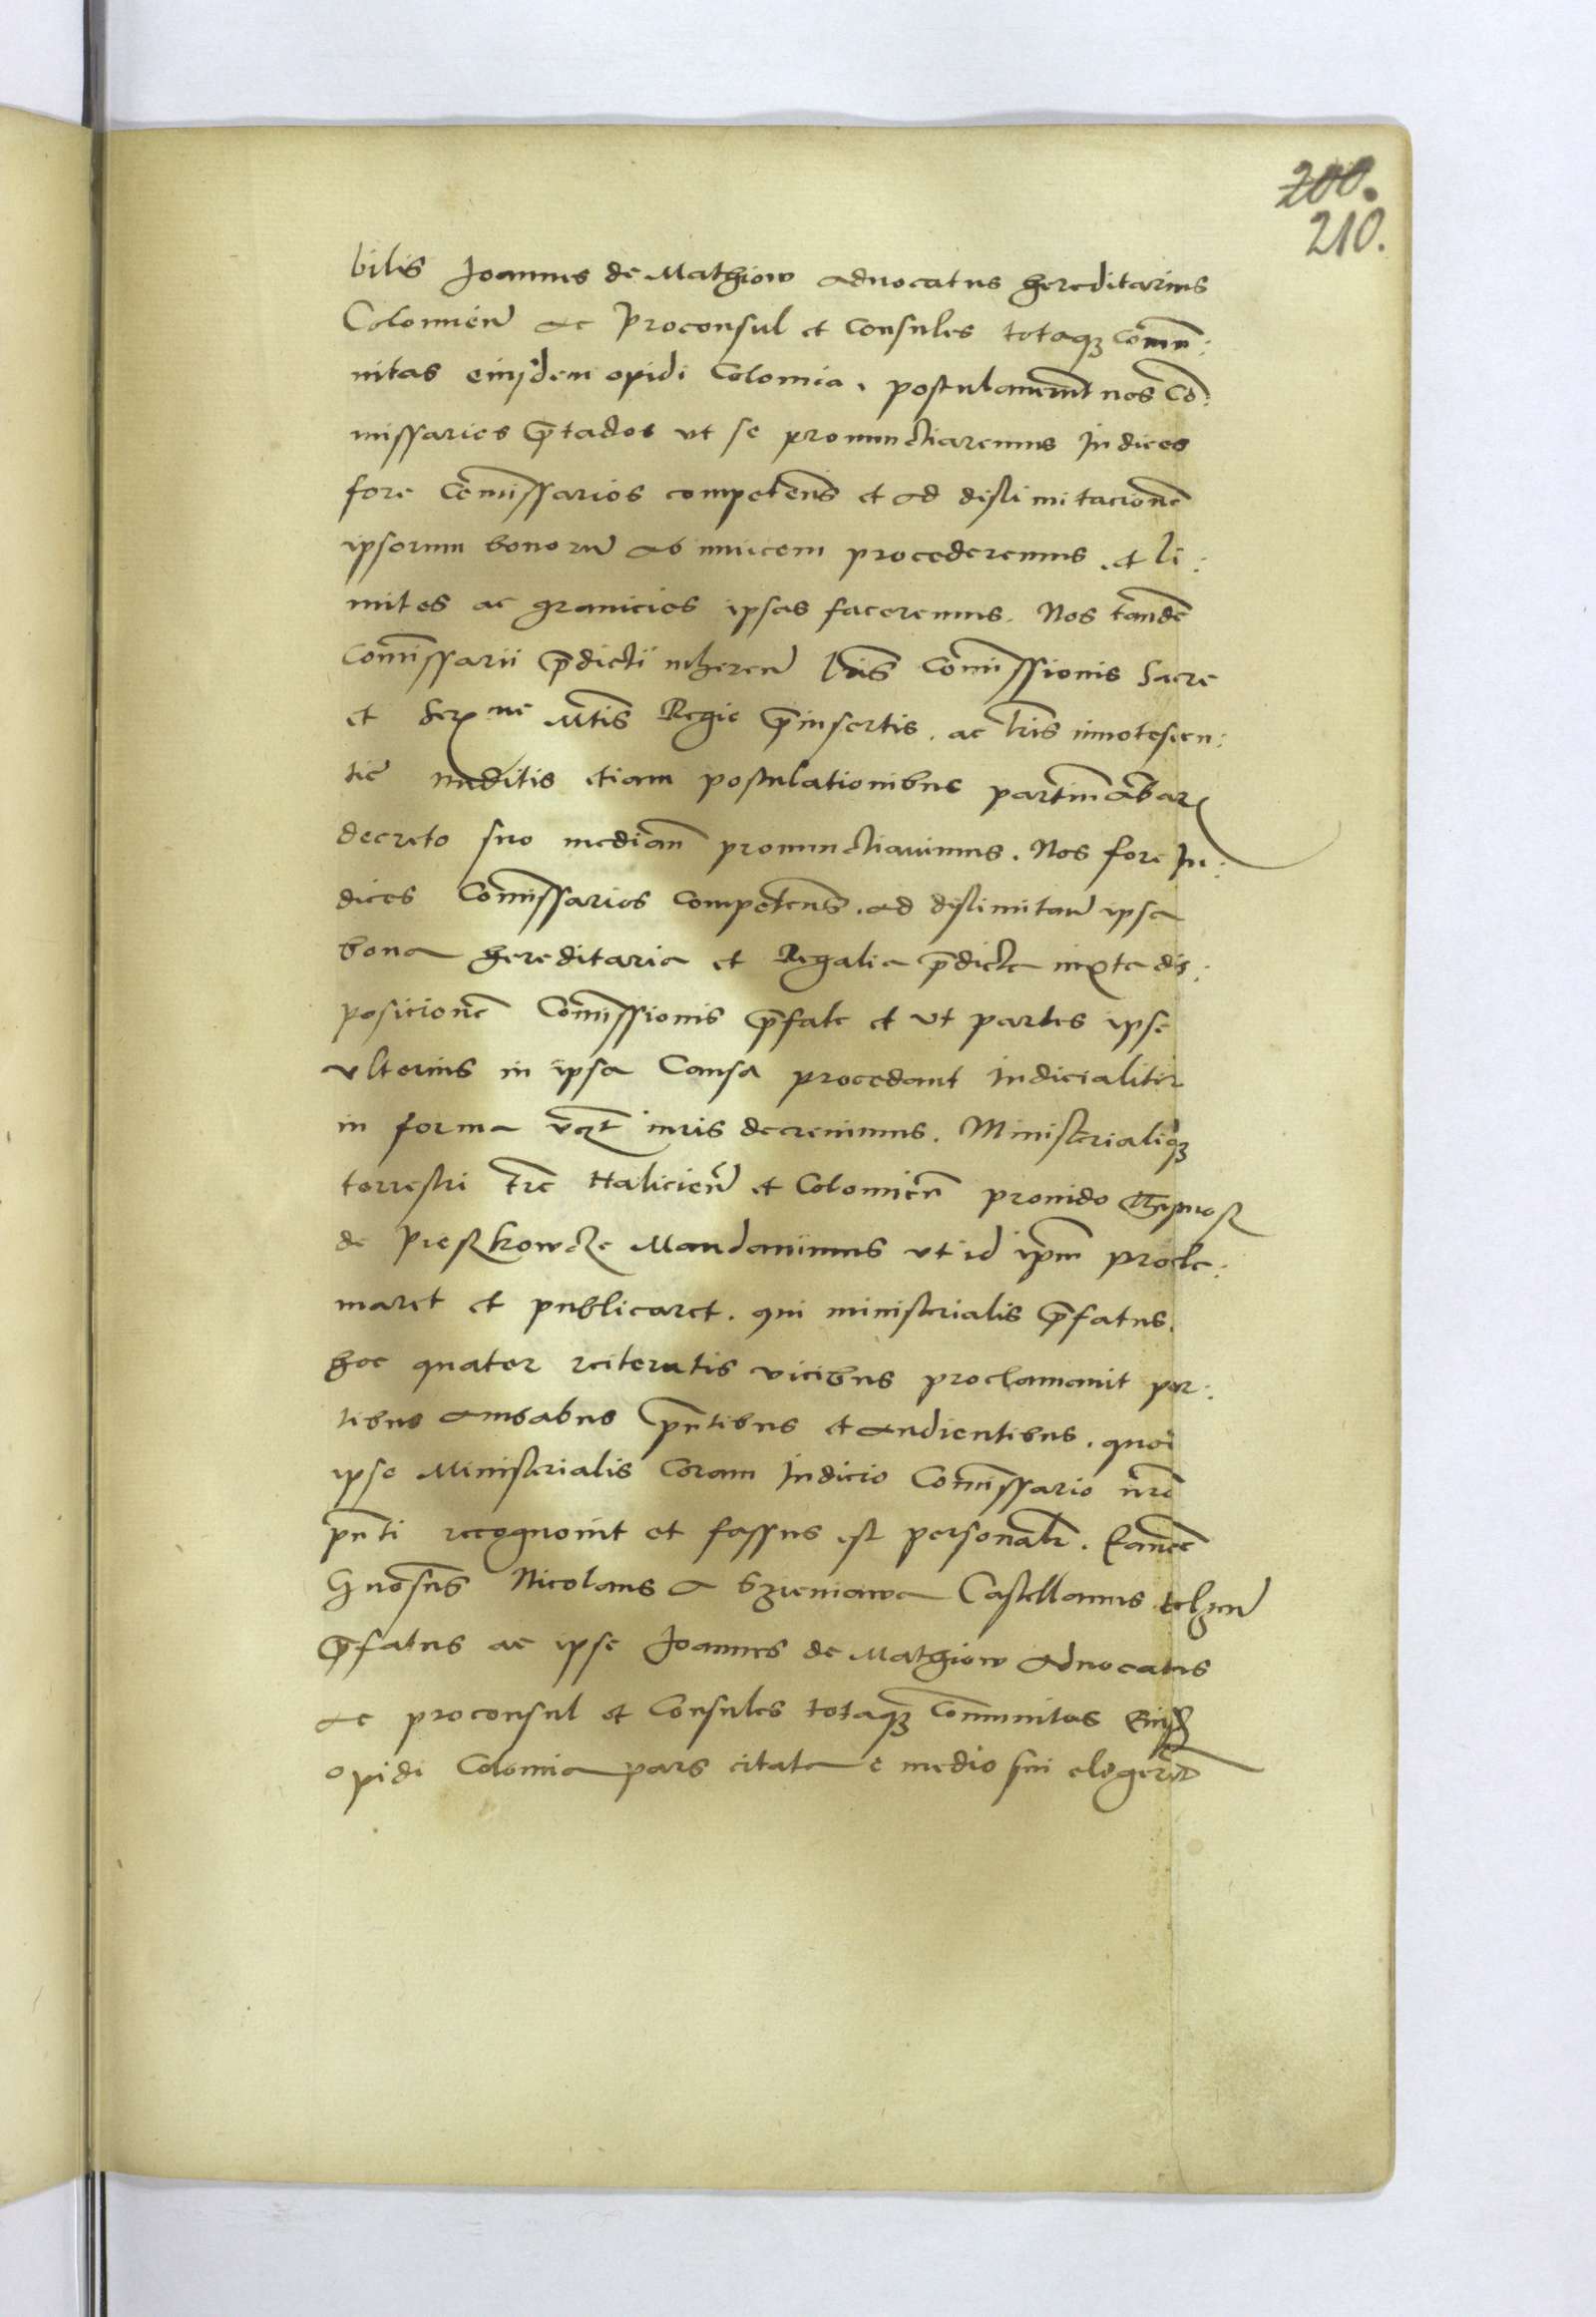 200.
210.
bilis Joannes de Mathiow aduocatus hereditarius
Colomien̄ ac Proconsul et Consules totaqȝ Com̄u:
nitas eiusdem opidi Colomia. postulauerūt nos Cō:
missarios p̄tactos vt se pronunctiaremus Iudices
fore Com̄issarios competen̄s et ad dislimitacionē
ipsorum bonorū ab inuicem procederemus. et li:
mites ac granicies ipsas faceremus. Nos tandē
Com̄issarii p̄dicti inheren̄ l̄ris Com̄issionis Sacre
et Ser̄me M̄tis Regie p̄insertis. ac l̄ris innotescen:
tie auditis etiam postulationibus partium ābarū
decreto suo median̄ pronunctiauimus. Nos fore Iu:
dices Com̄issarios Competen̄s. ad dislimitan̄ ipsa
bona hereditaria et Regalia p̄dicta iuxta dis:
posicionē Com̄issionis p̄fate et vt partes ipse
vlterius in ipsa Causa procedant Iudicialiter
in forma iuris decreuimus. Ministerialiqȝ
terrestri t̄re Halicien̄ et Colomien̄ prouido
de Pieszkowcze Mandauimus vt id ip̄m procla:
maret et publicaret. qui ministerialis p̄fatus.
hoc quater reiteratis vicibus proclamauit par:
tibus ambabus p̄ntibus et audientibus. quoī
ipse Ministerialis Coram Iudicio Com̄issario n̄ro
p̄nti recognouit et fassus est personalr̄. Et
G̅nosus Nicolaus a Szieniawa Castellanus belzen̄
p̄fatus ac ipse Joannes de Mathiow Aduocatus
ac proconsul et Consules totaqȝ Com̄unitas Eiusd̄
opidi Colomia pars citata e medio sui elegerūt